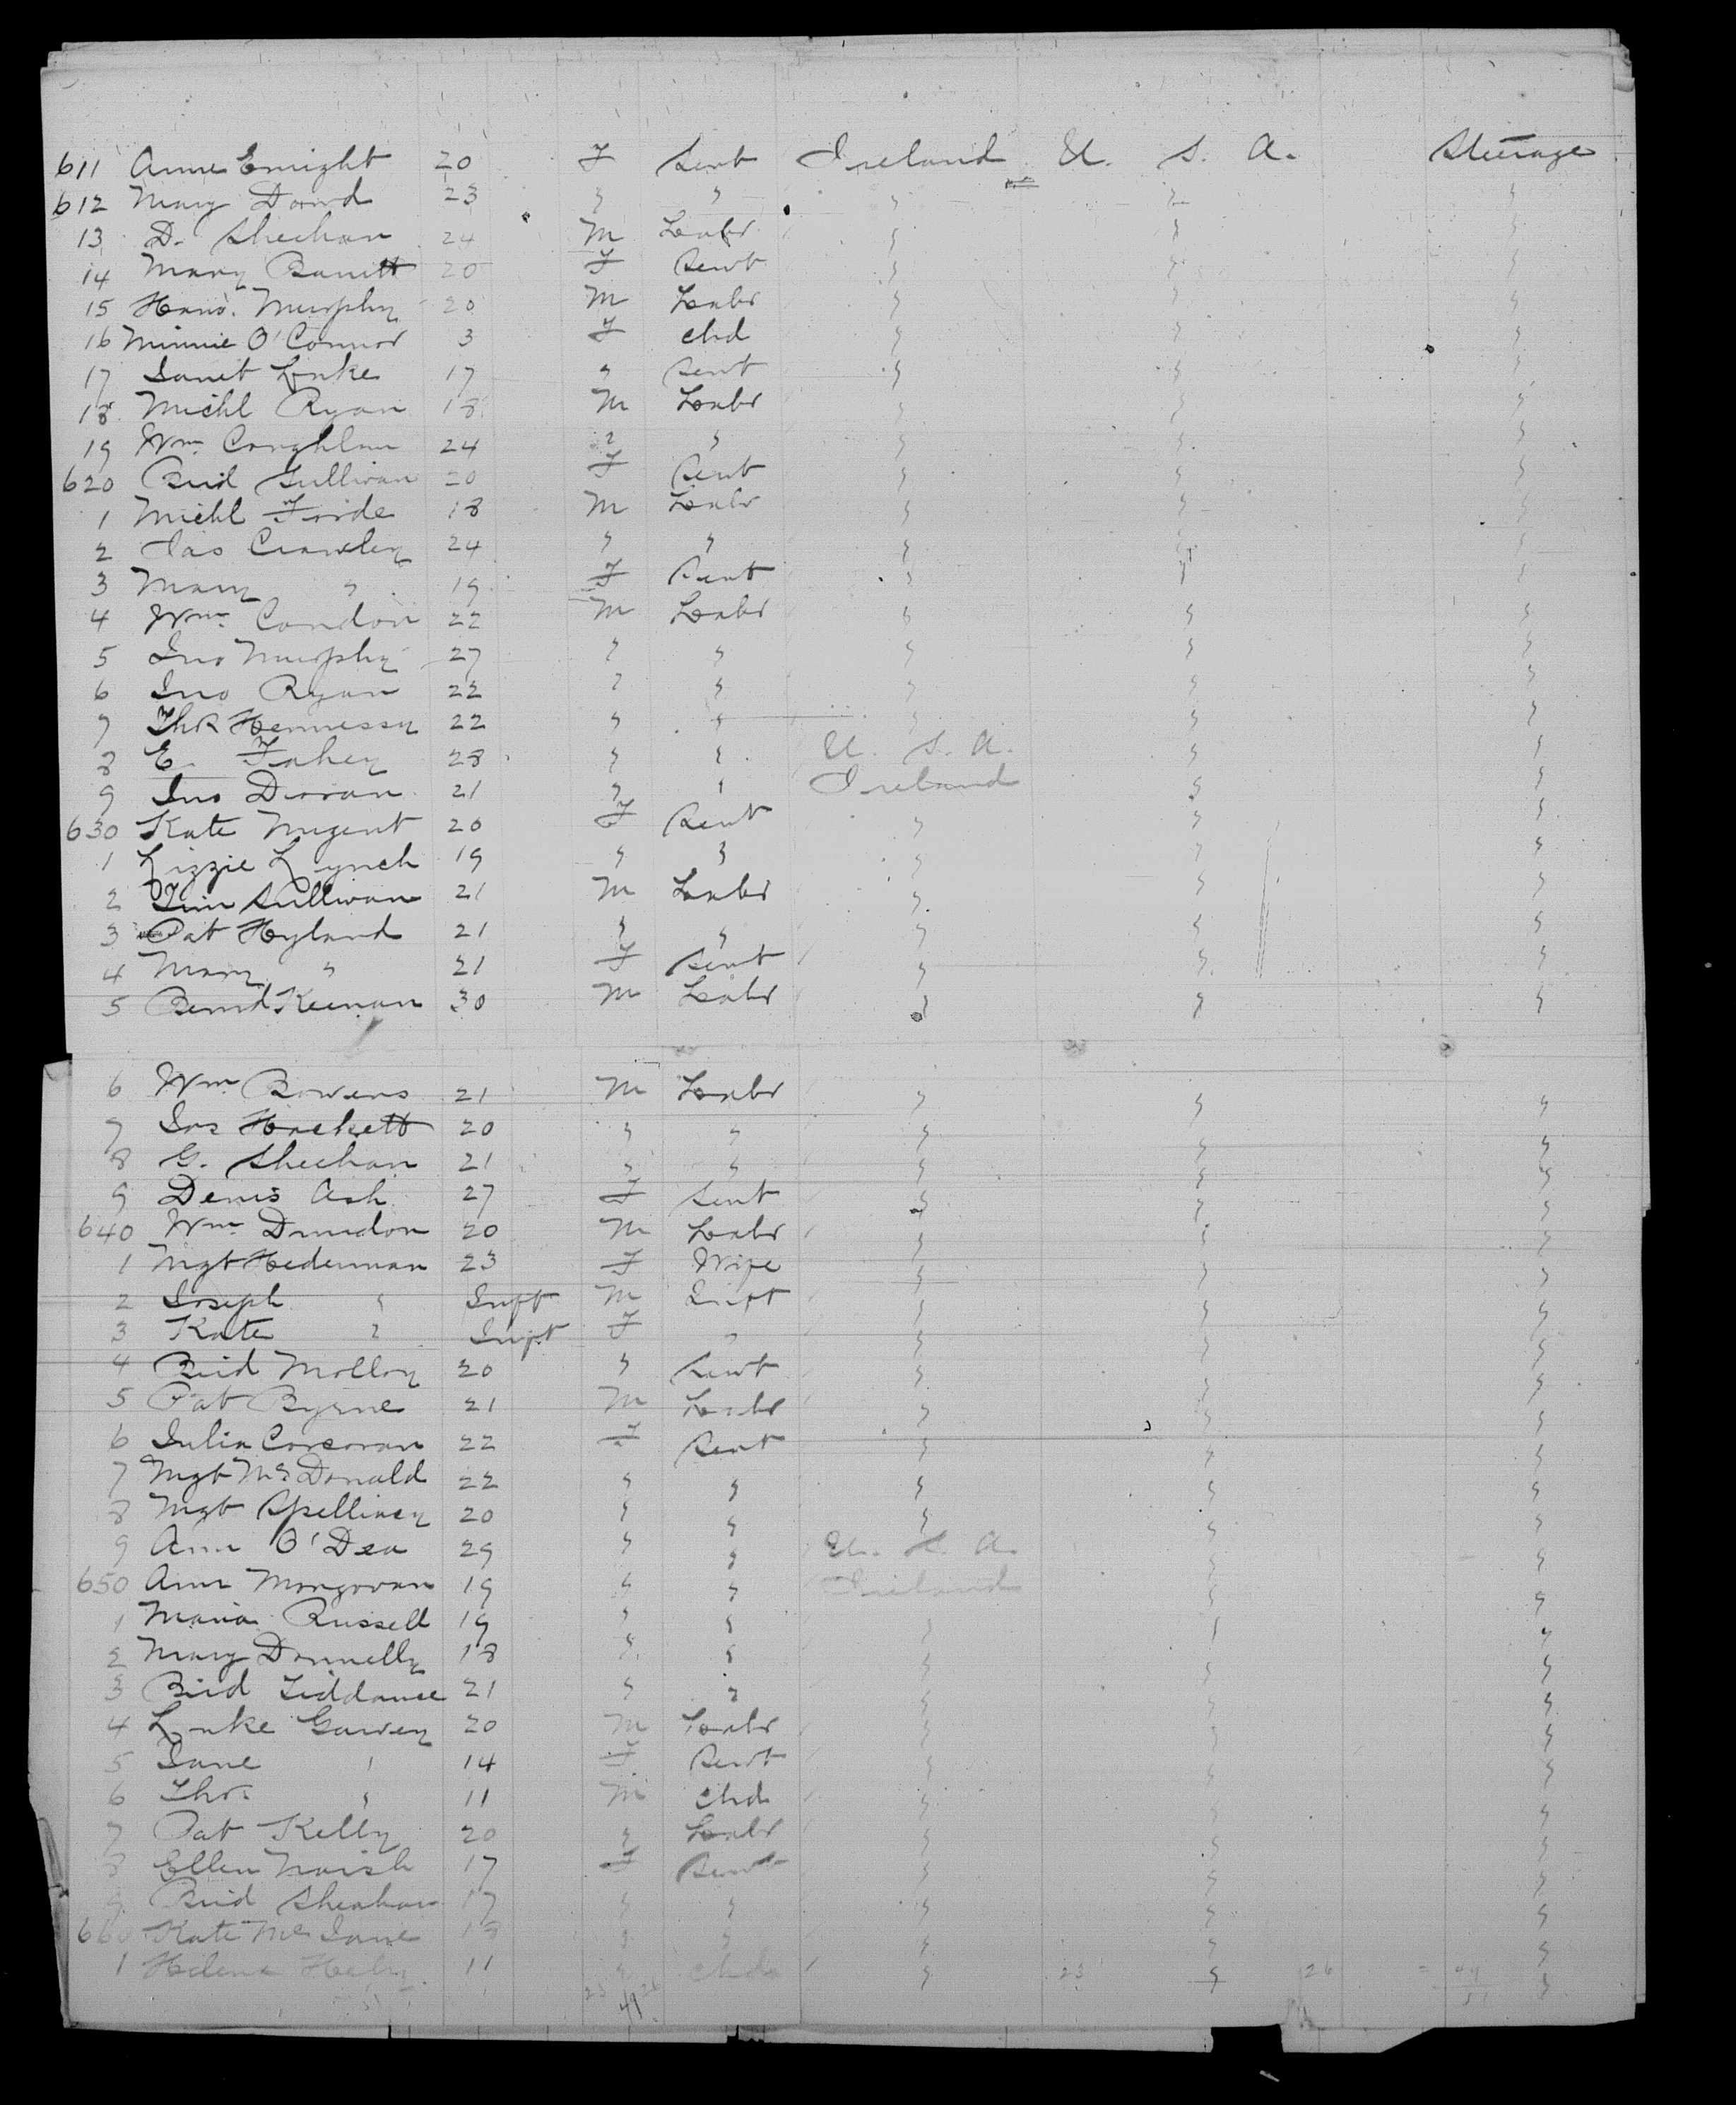 611 Anne Enright 20 F Sevt Ireland U. S. A. Steerage
612 Mary Dowd 23 " " " " "
13 D. Sheehan 24 M Labr " " "
14 Mary Barrett 20 F Sevt " " "
15 Hano. Murphy 20 M Labr " " "
16 Minnie O'Connor 3 F Chd " " "
17 Janet Luke 17 " Sevt " " "
18 Michl Ryan 18 M Labr " " "
19 Wm Coughlan 24 " " " " "
620 Brid Sullivan 20 F Sevt " " "
1 Michl Forde 18 M Labr " " "
2 Jas Crowley 24 " " " " "
3 Mary " 19 F Sevt " " "
4 Wm. Condon 22 M Labr " " "
5 Jno Murphy 27 " " " " "
6 Jno Ryan 22 " " " " "
7 Thos Hennessy 22 " " " " "
8 E. Fahey 28 " " U. S. A. " "
9 Jno Doran 21 " " Ireland " "
630 Kate Nugent 20 F Sevt " " "
1 Lizzie Lynch 19 " " " " "
2 Tim Sullivan 21 M Labr " " "
3 Pat Hyland 21 " " " " "
4 Mary " 21 F Sevt " " "
5 Bernd Keenan 30 M Labr " " "
6 Wm Bowens 21 M Labr " " "
7 Jos Hackett 20 " " " " "
8 G. Sheehan 21 " " " " "
9 Denis Ash 27 F Sevt " " "
640 Wm Dundon 20 M Labr " " "
1 Mgt Hedernan 23 F Wife " " "
2 Joseph " Inft M Inft " " "
3 Kate " Inft F " " " "
4 Brid Molloy 20 " Sevt " " "
5 Pat Byrne 21 M Labr " " "
6 Julia Corcoran 22 F Sevt " " "
7 Mgt McDonald 22 " " " " "
8 Mgt Spellissy 20 " " " " "
9 Ann O'Dea 29 " " U. S. A. " "
650 Ann Mongovan 19 " " Ireland " "
1 Maria Russell 19 " " " " "
2 Mary Donnelly 18 " " " " "
3 Brid Liddance 21 " " " " "
4 Luke Garvey 20 M Labr " " "
5 Jane " 14 F Sevt " " "
6 Thos " 11 M Chd " " "
7 Pat Kelly 20 " Labr " " "
8 Ellen Naish 17 F Sevt " " "
9 Brid Sheahan 17 " " " " "
660 Kate Mc Jane " " " " "
1 Helena Hely 11 " Chd " 23 " 26 "
23 26
49